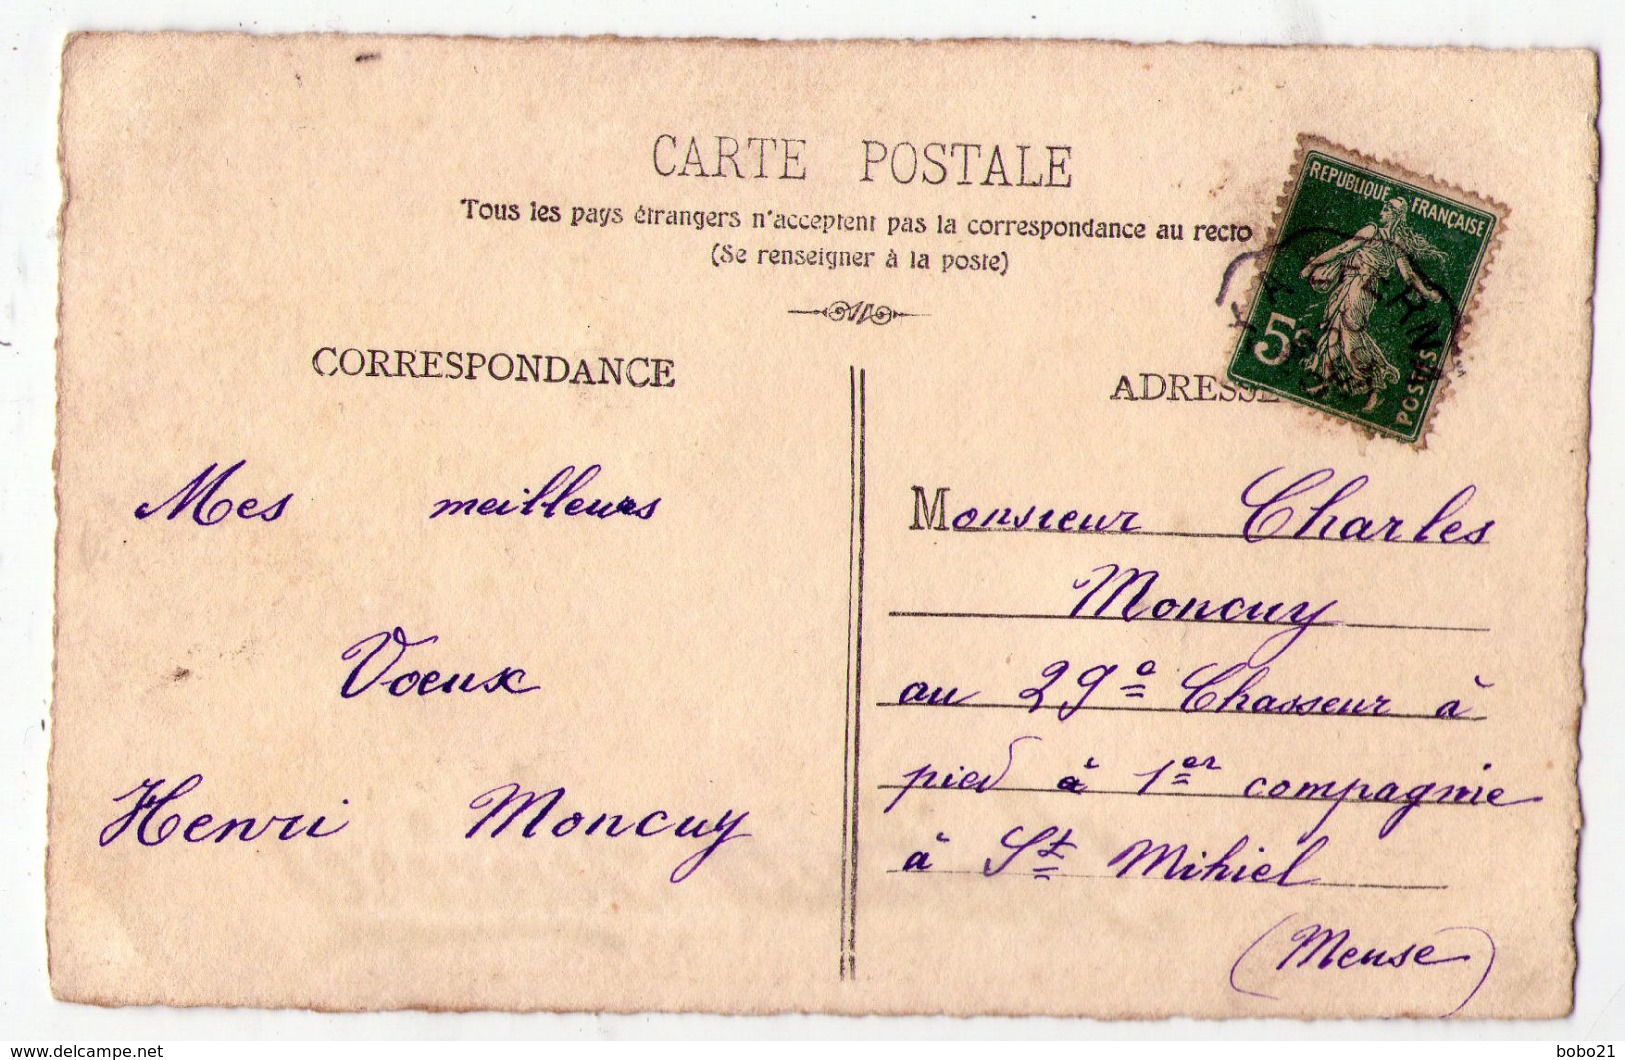 CARTE POSTALE
Tous les pays étrangers n'acceptent pas la correspondance au recto
(Se renseigner à la poste)
REPUBLIQUE FRANÇAISE
5c
POSTES
CORRESPONDANCE
ADRESSE
Mes meilleurs
Voeux
Henri Moncuy
Monsieur Charles
Moncuy
au 29e Chasseur à
pied à 1er compagnie
à St Mihiel
(Meuse)
www.delcampe.net
bobo21